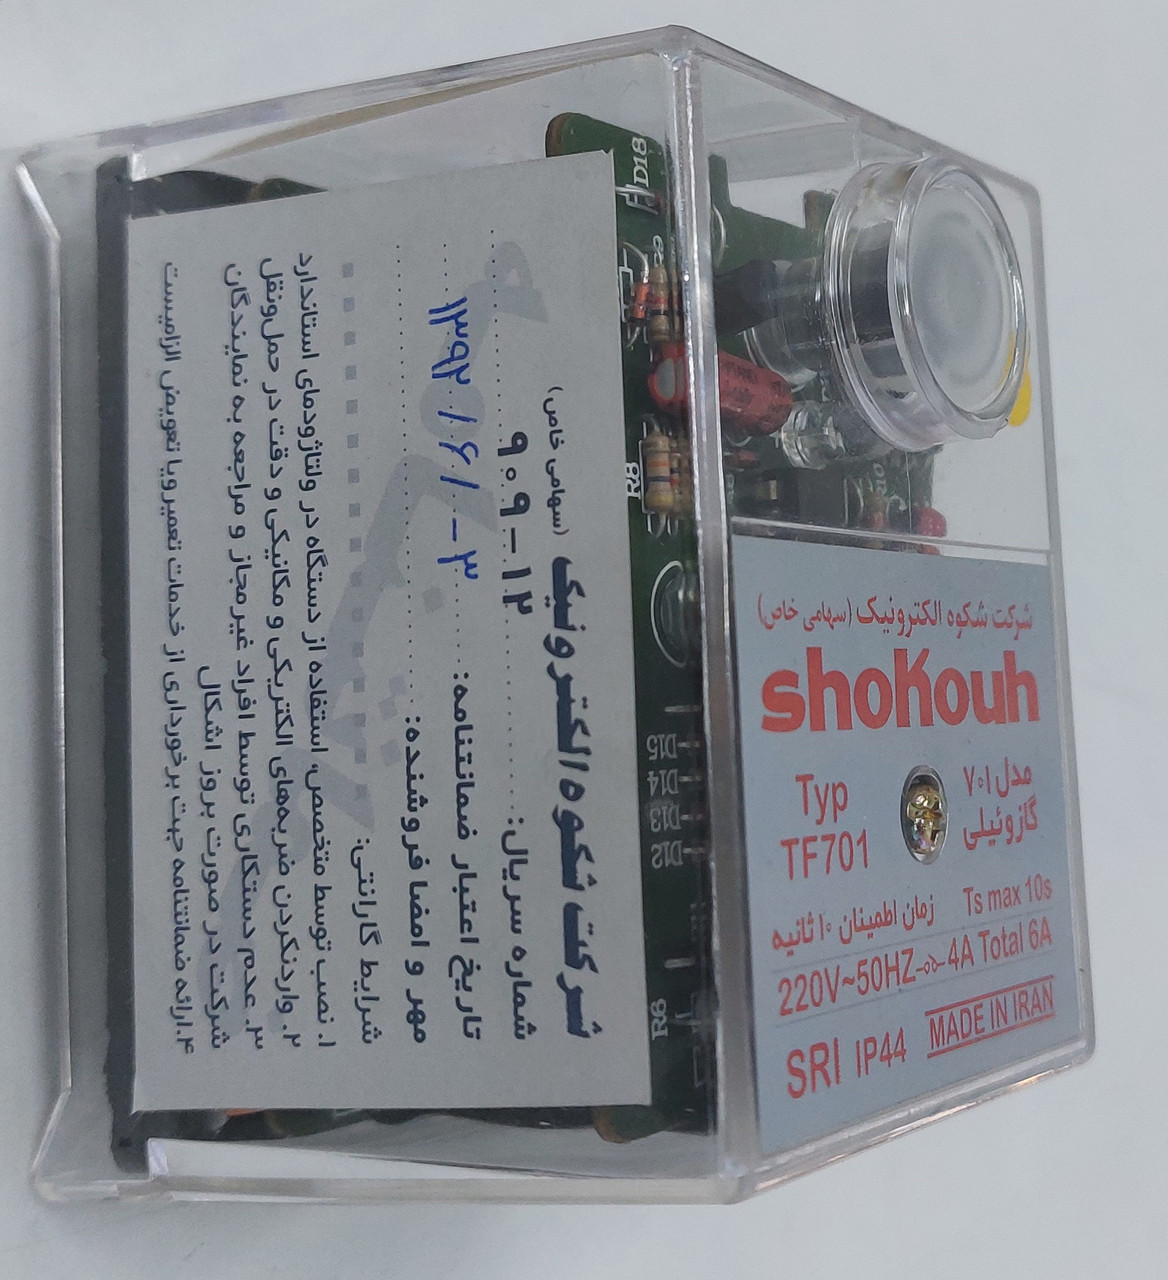 شرکت شکوه الکترونیک (سهامی خاص)
شماره سریال: ۹۰۹-۱۲
تاریخ اعتبار ضمانتنامه: ۱۳۹۲/۶/-۳
مهر و امضا فروشنده:
شرایط گارانتی:
۱. نصب توسط متخصص، استفاده از دستگاه در ولتاژودمای استاندارد
۲. واردنکردن ضربه‌های الکتریکی و مکانیکی و دقت در حمل‌ونقل
۳. عدم دستکاری توسط افراد غیرمجاز و مراجعه به نمایندگان
شرکت در صورت بروز اشکال
۴.ارائه ضمانتنامه جهت برخورداری از خدمات تعمیرویا تعویض الزامیست
شرکت شکوه الکترونیک (سهامی خاص)
shoKouh
Typ
TF701
مدل ۷۰۱
گازوئیلی
زمان اطمینان ۱۰ ثانیه Ts max 10s
220V~50HZ 4A Total 6A
SRI IP44 MADE IN IRAN
D18
R8
D15
D14
D13
D12
R6